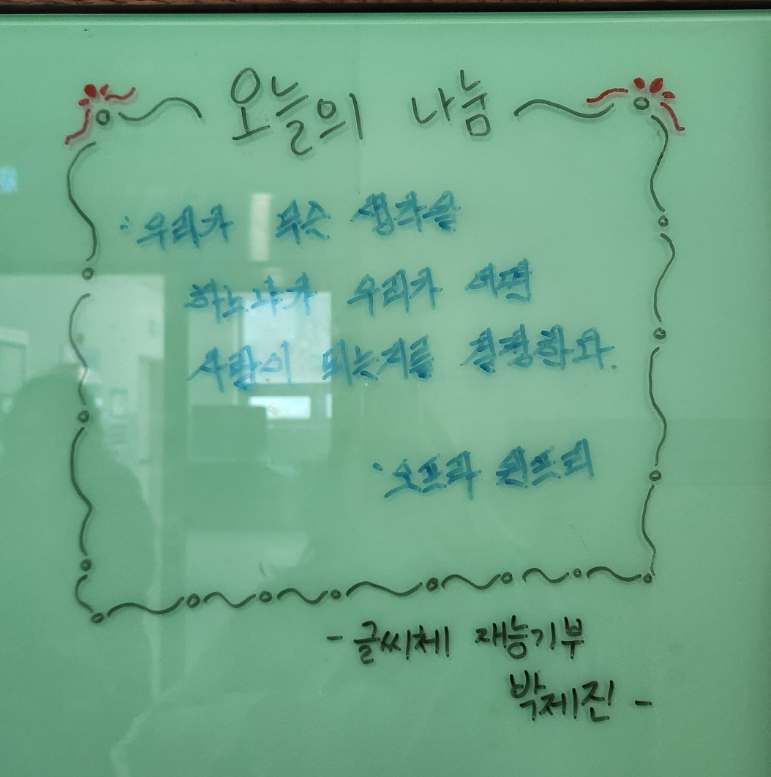 오늘의 나눔
: 우리가 무슨 생각을
하느냐가 우리가 어떤
사람이 되는지를 결정한다.
· 오프라 윈프리
- 글씨체 재능기부
박제진 -